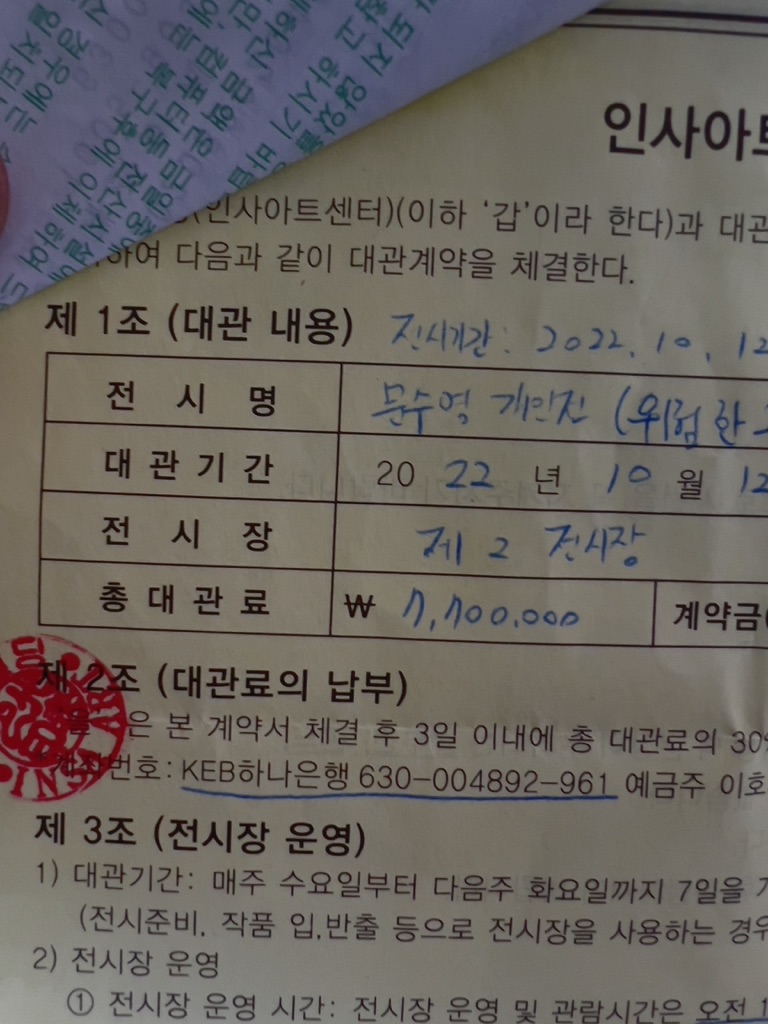 되지 않았을
참고 하시기 바랍
하신 금액은 금일중
에는 컴퓨터등 전산시설에
복구후에 이체하여 드
경우에는
일치되는
인사아트
(인사아트센터)(이하 '갑'이라 한다)과 대관
하여 다음과 같이 대관계약을 체결한다.
제 1조 (대관 내용) 전시기간: 2022. 10. 12
전 시 명 문수영 개인전 (위험한
대 관 기 간 20 22 년 10 월 12
전 시 장 제 2 전시장
총 대 관 료 ₩ 7,700.000 계약금(
제 2조 (대관료의 납부)
은 본 계약서 체결 후 3일 이내에 총 대관료의 30%
계좌번호: KEB하나은행 630-004892-961 예금주 이호
제 3조 (전시장 운영)
1) 대관기간: 매주 수요일부터 다음주 화요일까지 7일을 기
(전시준비, 작품 입,반출 등으로 전시장을 사용하는 경우
2) 전시장 운영
① 전시장 운영 시간: 전시장 운영 및 관람시간은 오전 1